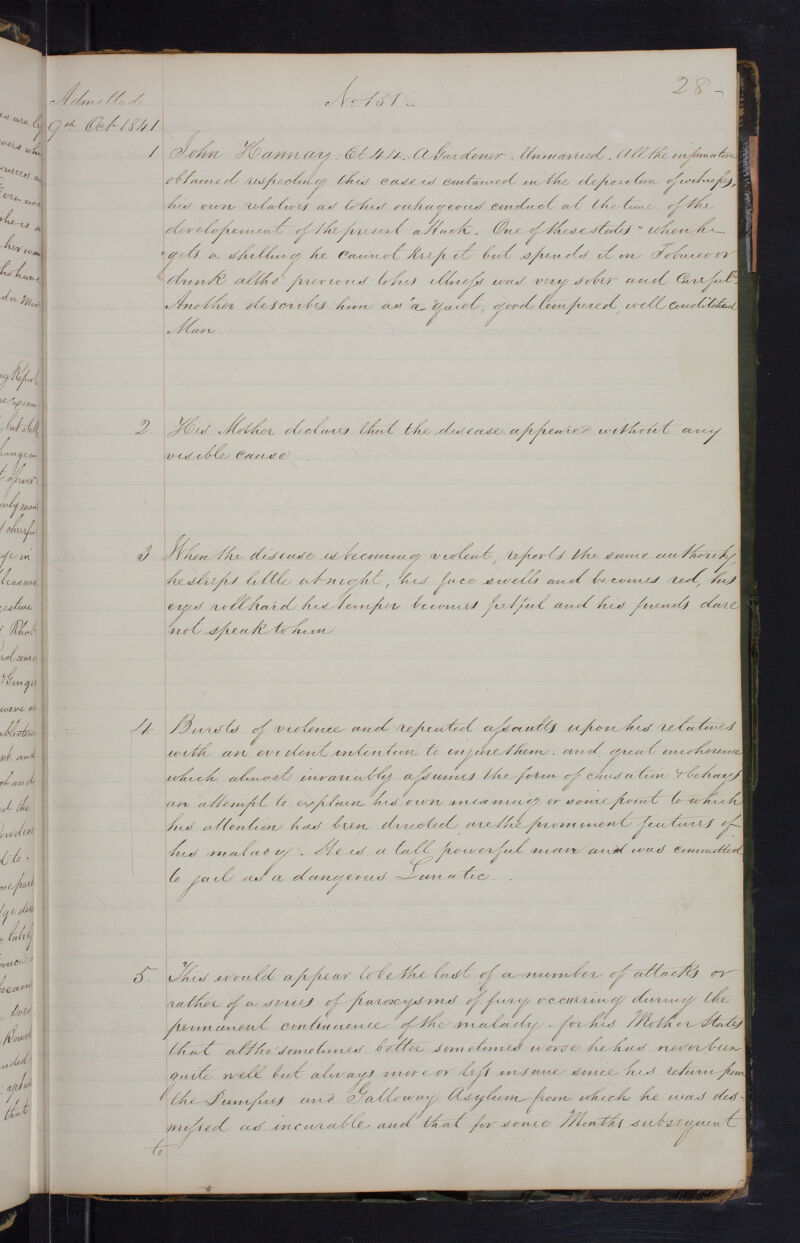 28-
Admitted
No 151-
9th Oct 1841
1 John Hannay. Et 44. A Gardener. Unmarried. All the information
obtained respecting this case is contained in the deposition of witnesses,
his own relatives as to his outrageous conduct at the time of the
developement of the present attack. One of these states "when he
"gets a shilling he cannot keep it but spends it on Tobacco or
"drink altho' previous to his illness was very sober and careful"
Another describes him as "a quiet, good tempered, well conditioned
Man
2 His Mother declares that the disease appeared without any
visible cause
3 When the disease is becoming violent, reports the same authority,
he sleeps little at night, his face swells and becomes red, his
eyes roll hard his temper becomes fretful and his friends dare
not speak to him
4 Bursts of violence and repeated assaults upon his relatives
with an evident intention to injure them: and great incoherence
which almost invariably assumes the form of causation & betrays
an attempt to explain his own meaning or some point to which
his attention has been directed are the prominent features of
his malady. He is a tall powerful man and was committed
to jail as a dangerous Lunatic.
5 This would appear to be the last of a number of attacks or
rather of a series of paroxysms of fury occurring during the
permanent continuence of the malady. for his Mother States
that altho' sometimes better sometimes worse he has never been
quite well but always more or less insane since his return from
the Dumfries and Galloway Asylum from which he was dis-
missed as incurable and that for some Months subsequent
to